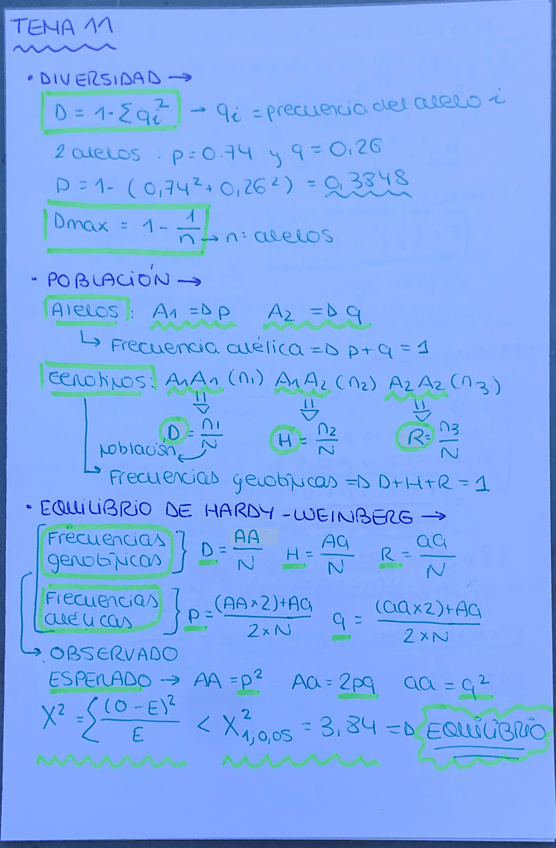 TEMA 11
• DIVERSIDAD →
D = 1 - Σqi² → qi = frecuencia del alelo i
2 alelos : p = 0.74 y q = 0,26
D = 1 - (0,74² + 0,26²) = 0,3848
Dmax = 1 - 1/n → n: alelos
• POBLACIÓN →
Alelos: A1 => p A2 => q
↳ Frecuencia alélica => p + q = 1
Genotipos: A1A1 (n1) A1A2 (n2) A2A2 (n3)
D = n1/N H = n2/N R = n3/N
población
Frecuencias genotípicas => D + H + R = 1
• EQUILIBRIO DE HARDY - WEINBERG →
Frecuencias genotípicas } D = AA/N H = Aa/N R = aa/N
Frecuencias alélicas } p = (AAx2)+Aa / 2xN q = (aax2)+Aa / 2xN
↳ OBSERVADO
ESPERADO → AA = p² Aa = 2pq aa = q²
X² = Σ (O - E)²/E < X²1,0,05 = 3,84 => EQUILIBRIO